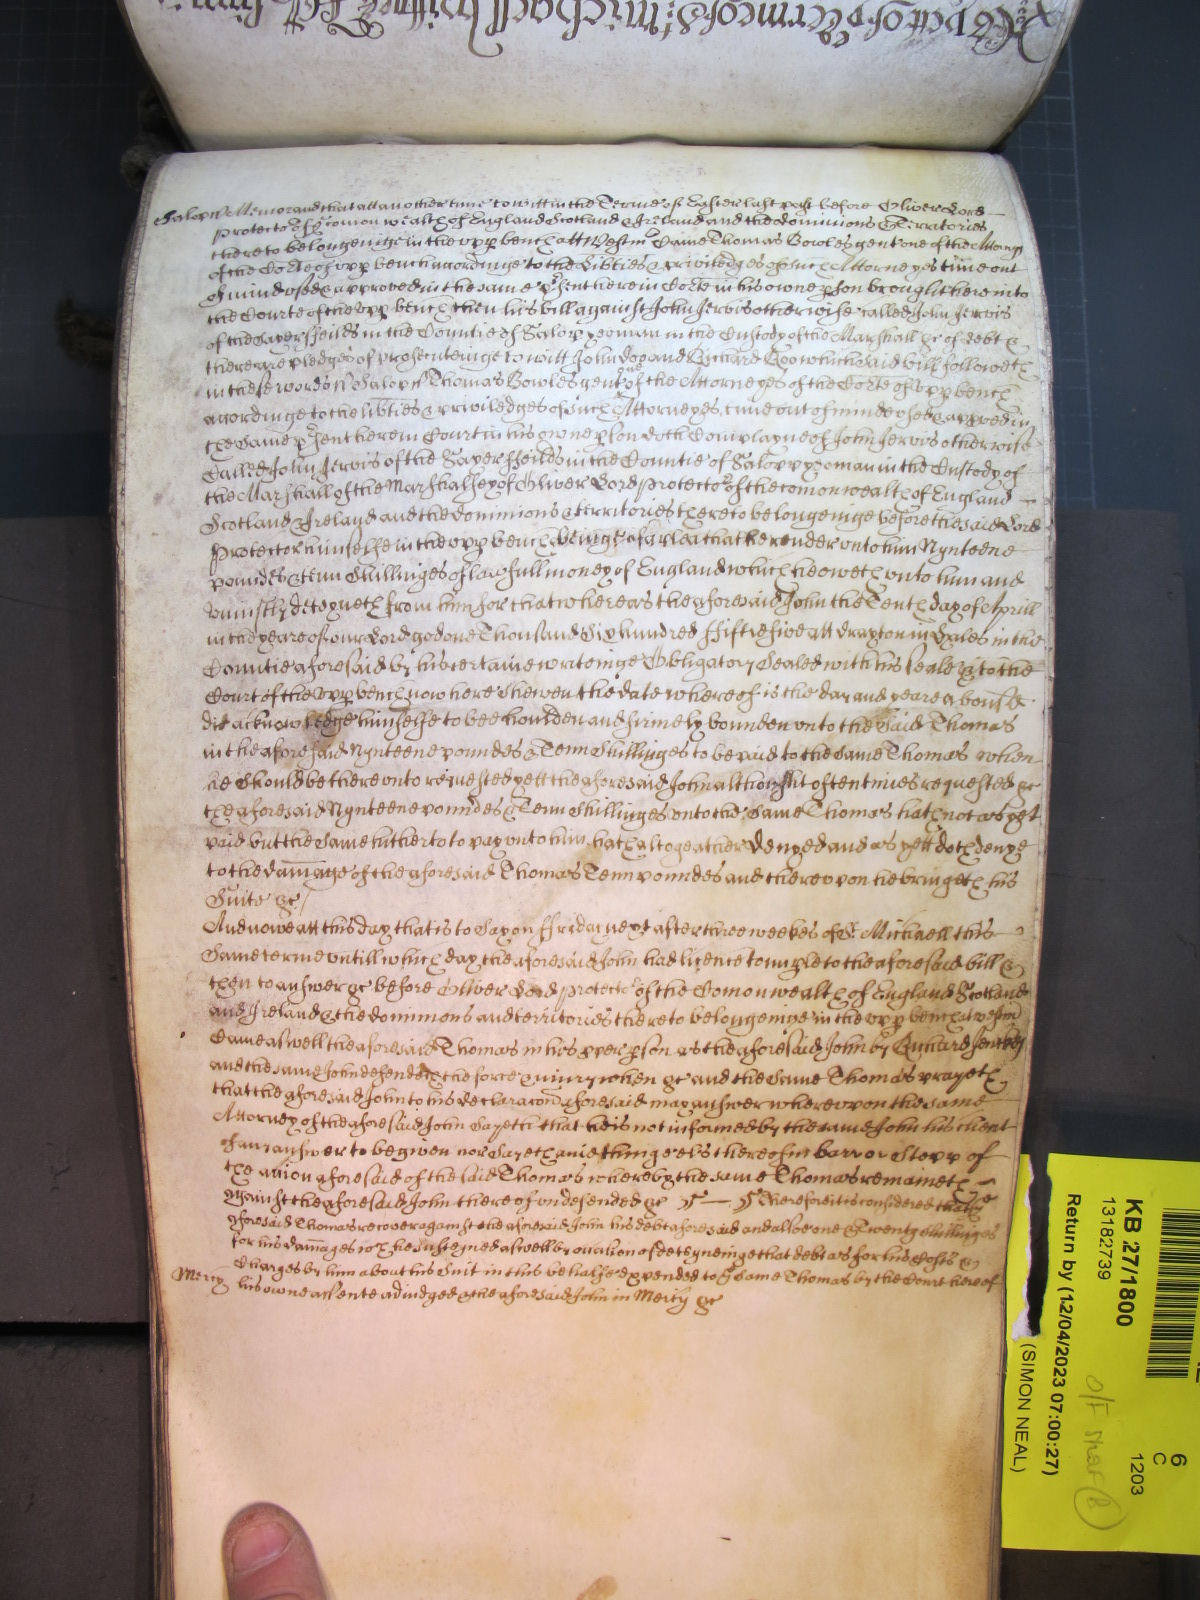 Salop ss Memorand that att another time to witt in the Terme of Easter last past before Oliver Lord
Protector of ye Comon wealth of England Scotland & Ireland and the dominions & Territories
thereto belongeinge in the upp bench att Westm Came Thomas Bowles gent one of the Attorn
of the Corte of upp bench accordinge to the Lib'ties & priviledges of such Attorneyes time out
of mind used & approved in the same p'sent here in Corte in his owne p'son brought here into
the Courte of the upp bench then his bill against John Jervis otherwise called John Jervis
of the Sayer ffeilds in the Countie of Salop yeoman in the Custody of the Marshall &c of debt &
there are pledges of prosecuteinge to witt John doo and Richard Roo which said bill followeth
in these words ss Salop ss Thomas Bowles gent one of the Attorneyes of the Corte of upp bench
accordinge to the lib'ties & priviledges of such Attorneyes time out of minde used & approved in
the same p'sent here in Court in his owne p'son doth Complayne of John Jervis otherwise
Called John Jervis of the Sayer ffeilds in the Countie of Salop yeoman in the Custody of
the Marshall of the Marshalsey of Oliver Lord Protector of the comonwealth of England
Scotland & Ireland and the dominions & territories thereto belongeinge before the said Lord
Protector himselfe in the upp bench beinge of a plea that he render unto him Nynteene
poundes & tenn Shillinges of lawfull money of England which he oweth unto him and
uniustly deteyneth from him for that whereas the aforesaid John the Tenth day of Aprill
in the yeare of our Lord god one Thousand Six hundred ffiftie five att drayton in Hales in the
Countie aforesaid by his certaine writeinge Obligatory Sealed with his seale & to the
Court of the upp bench now here Shewen the date whereof is the day and yeare above s'd
did acknowledge himselfe to bee houlden and firmely bounden unto the said Thomas
in the aforesaid Nynteene poundes & Tenn Shillinges to be paid to the same Thomas when
he Should be thereunto requested yett the aforesaid John although oftentimes requested &c
the aforesaid Nynteene poundes & Tenn Shillinges unto the Same Thomas hath not as yet
paid but the same hitherto to pay unto him hath altogeather denyed and as yett doth denye
to the damage of the aforesaid Thomas Tenn poundes and thereupon he bringeth his
Suite &c /
And nowe att this day that is to Say on ffriday next after three weekes of St Michaell this
Same terme untill which day the aforesaid John had licence to imp'le to the aforesaid bill &
then to answer &c before Oliver Lord Protector of the Comonwealth of England Scotland
and Ireland & the dominions and territories thereto belongeinge in the upp bench at westm
Came aswell the aforesaid Thomas in his p'per p'son as the aforesaid John by Richard
and the same John defendeth the force & iniury when &c and the Same Thomas prayeth
that the aforesaid John to his declaracon aforesaid may answer whereupon the same
Attorney of the aforesaid John Sayeth that he is not informed by the same John his client
of any answer to be given nor Sayeth anie thinge els thereof in barr or Stopp of
the action aforesaid of the said Thomas whereby the same Thomas remaineth
against the aforesaid John thereof undefended &c Therefore it is considered that ye
aforesaid Thomas recover against the aforesaid John his debt aforesaid and alsoe one & twenty shillinges
for his damages wch he susteyned aswell by occasion of deteyneinge that debt as for his Costs &
Charges by him about his Suit in this behalfe expended to ye Same Thomas by the Court here of
Mercy his owne assente adiudged & the aforesaid John in Mercy &c
KB 27/1800
13182739
Return by (12/04/2023 07:00:27)
(SIMON NEAL)
6
C
1203